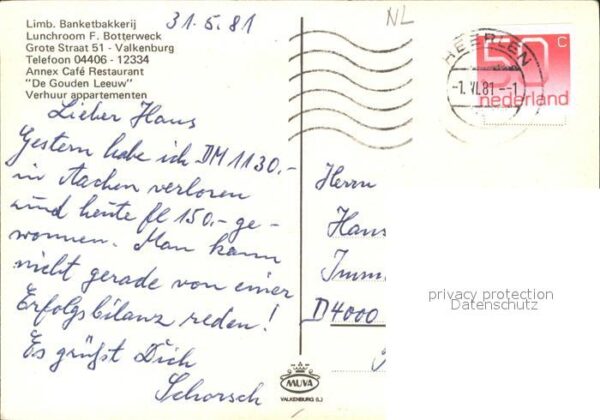 Limb. Banketbakkerij
Lunchroom F. Botterweck
Grote Straat 51 - Valkenburg
Telefoon 04406 - 12334
Annex Café Restaurant
"De Gouden Leeuw"
Verhuur appartementen
31.5.81
NL
HEERLEN
-1.VI.81.--1
50 C
nederland
Lieber Hans
Gestern habe ich DM 1130.-
in Aachen verloren
und heute fl 150,- ge-
wonnen. Man kann
nicht gerade von einer
Erfolgsbilanz reden!
Es grüßt Dich
Schorsch
Herrn
Hans
Imm
D4000
privacy protection
Datenschutz
MUVA
VALKENBURG (L.)